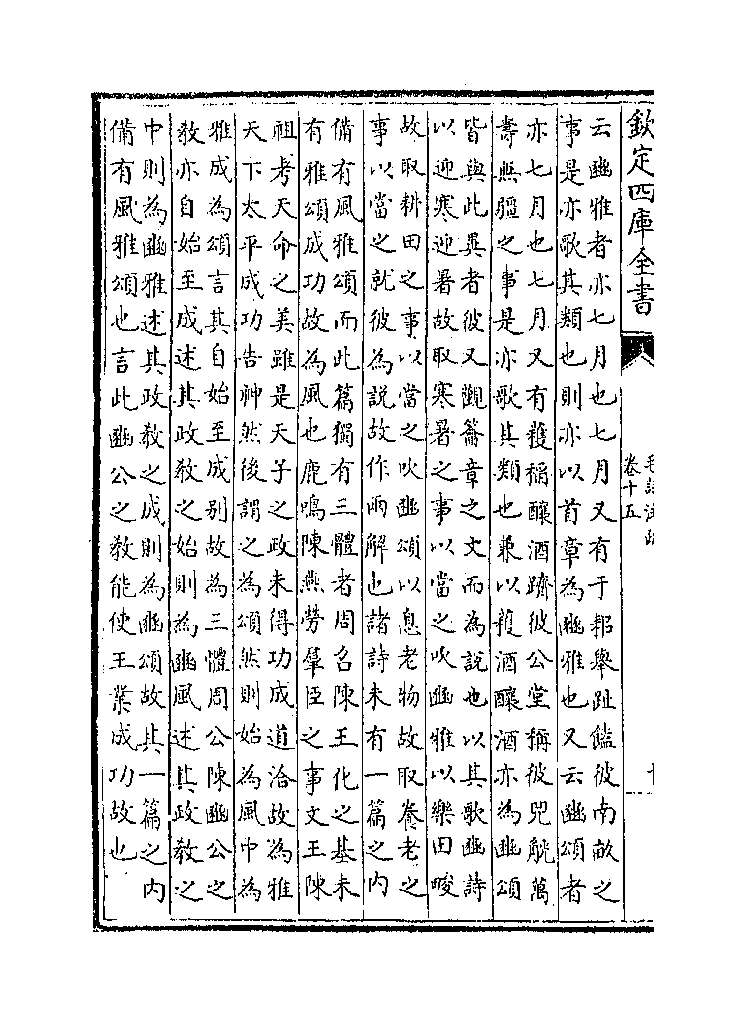 欽定四庫全書
毛詩注疏
卷十五
云豳雅者亦七月也七月又有于耜舉趾饁彼南畝之
事是亦歌其類也則亦以首章為豳雅也又云豳頌者
亦七月也七月又有穫稻釀酒躋彼公堂稱彼兕觥萬
壽無疆之事是亦歌其類也兼以穫酒釀酒亦為豳頌
皆與此異者彼又觀籥章之文而為說也以其歌豳詩
以迎寒迎暑故取寒暑之事以當之吹豳雅以樂田畯
故取耕田之事以當之吹豳頌以息老物故取養老之
事以當之就彼為說故作兩解也諸詩未有一篇之内
備有風雅頌而此篇獨有三體者周召陳王化之基未
有雅頌成功故為風也鹿鳴陳燕勞羣臣之事文王陳
祖考天命之美雖是天子之政未得功成道洽故為雅
天下太平成功告神然後謂之為頌然則始為風中為
雅成為頌言其自始至成别故為三體周公陳豳公之
教亦自始至成述其政教之始則為豳風述其政教之
中則為豳雅述其政教之成則為豳頌故其一篇之内
備有風雅頌也言此豳公之教能使王業成功故也